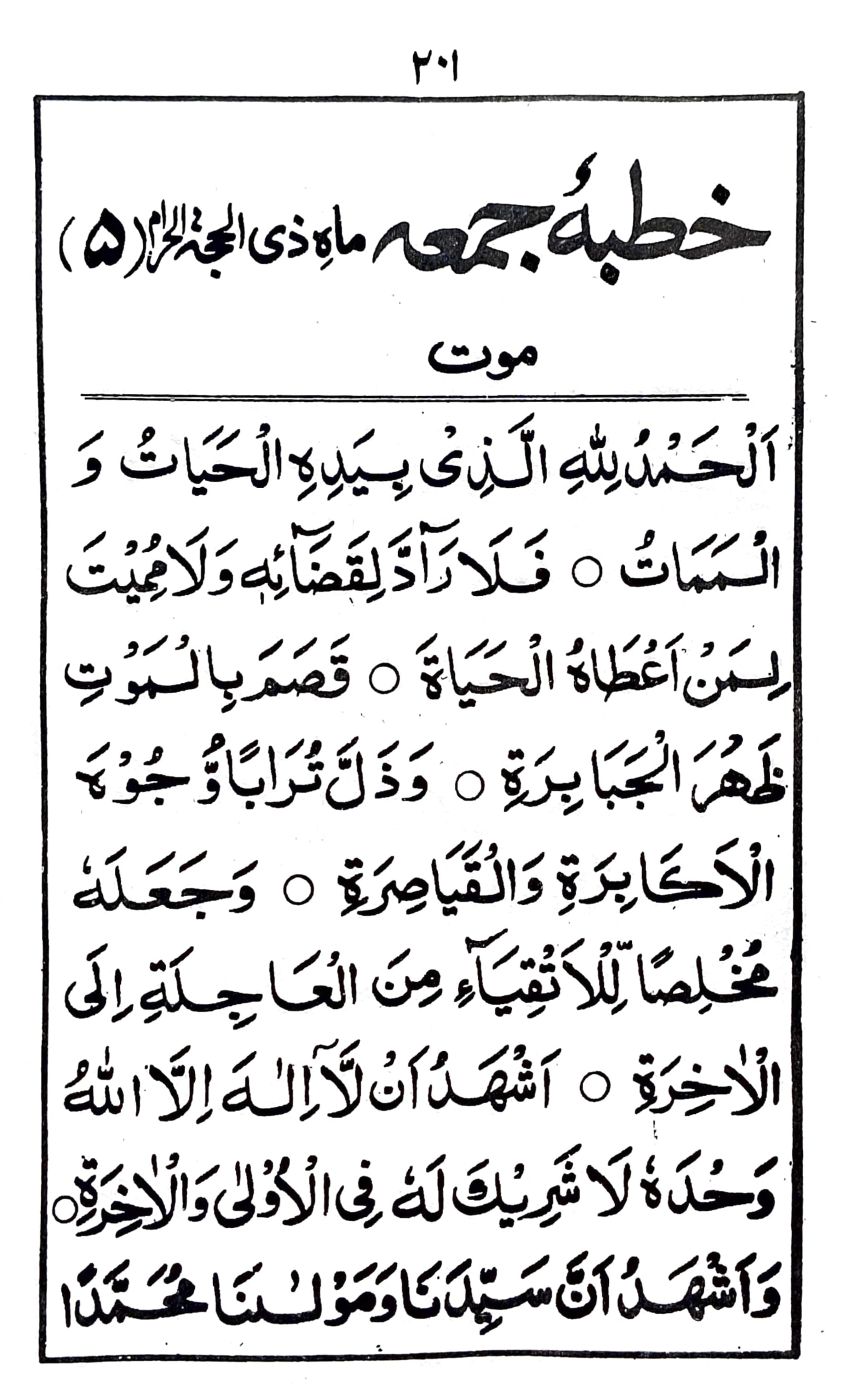 ۲۰۱
خطبۂ جمعہ ماہِ ذی الحجۃ الحرام (۵)
موت
اَلْحَمْدُ لِلّٰهِ الَّذِىْ بِيَدِهِ الْحَيَاتُ وَ
الْمَمَاتُ ○ فَلَا رَآدَّ لِقَضَآئِهٖ وَلَا مُمِيْتَ
لِمَنْ اَعْطَاهُ الْحَيَاةَ ○ قَصَمَ بِالْمَوْتِ
ظَهْرَ الْجَبَابِرَةِ ○ وَذَلَّ تُرَابًا وُّجُوْهَ
الْاَكَابِرَةِ وَالْقَيَاصِرَةِ ○ وَجَعَلَهٗ
مُخْلِصًا لِّلْاَتْقِيَآءِ مِنَ الْعَاجِلَةِ اِلَى
الْاٰخِرَةِ ○ اَشْهَدُ اَنْ لَّآ اِلٰهَ اِلَّا اللهُ
وَحْدَهٗ لَا شَرِيْكَ لَهٗ فِى الْاُوْلٰى وَالْاٰخِرَةِ ○
وَاَشْهَدُ اَنَّ سَيِّدَنَا وَمَوْلٰىنَا مُحَمَّدًا